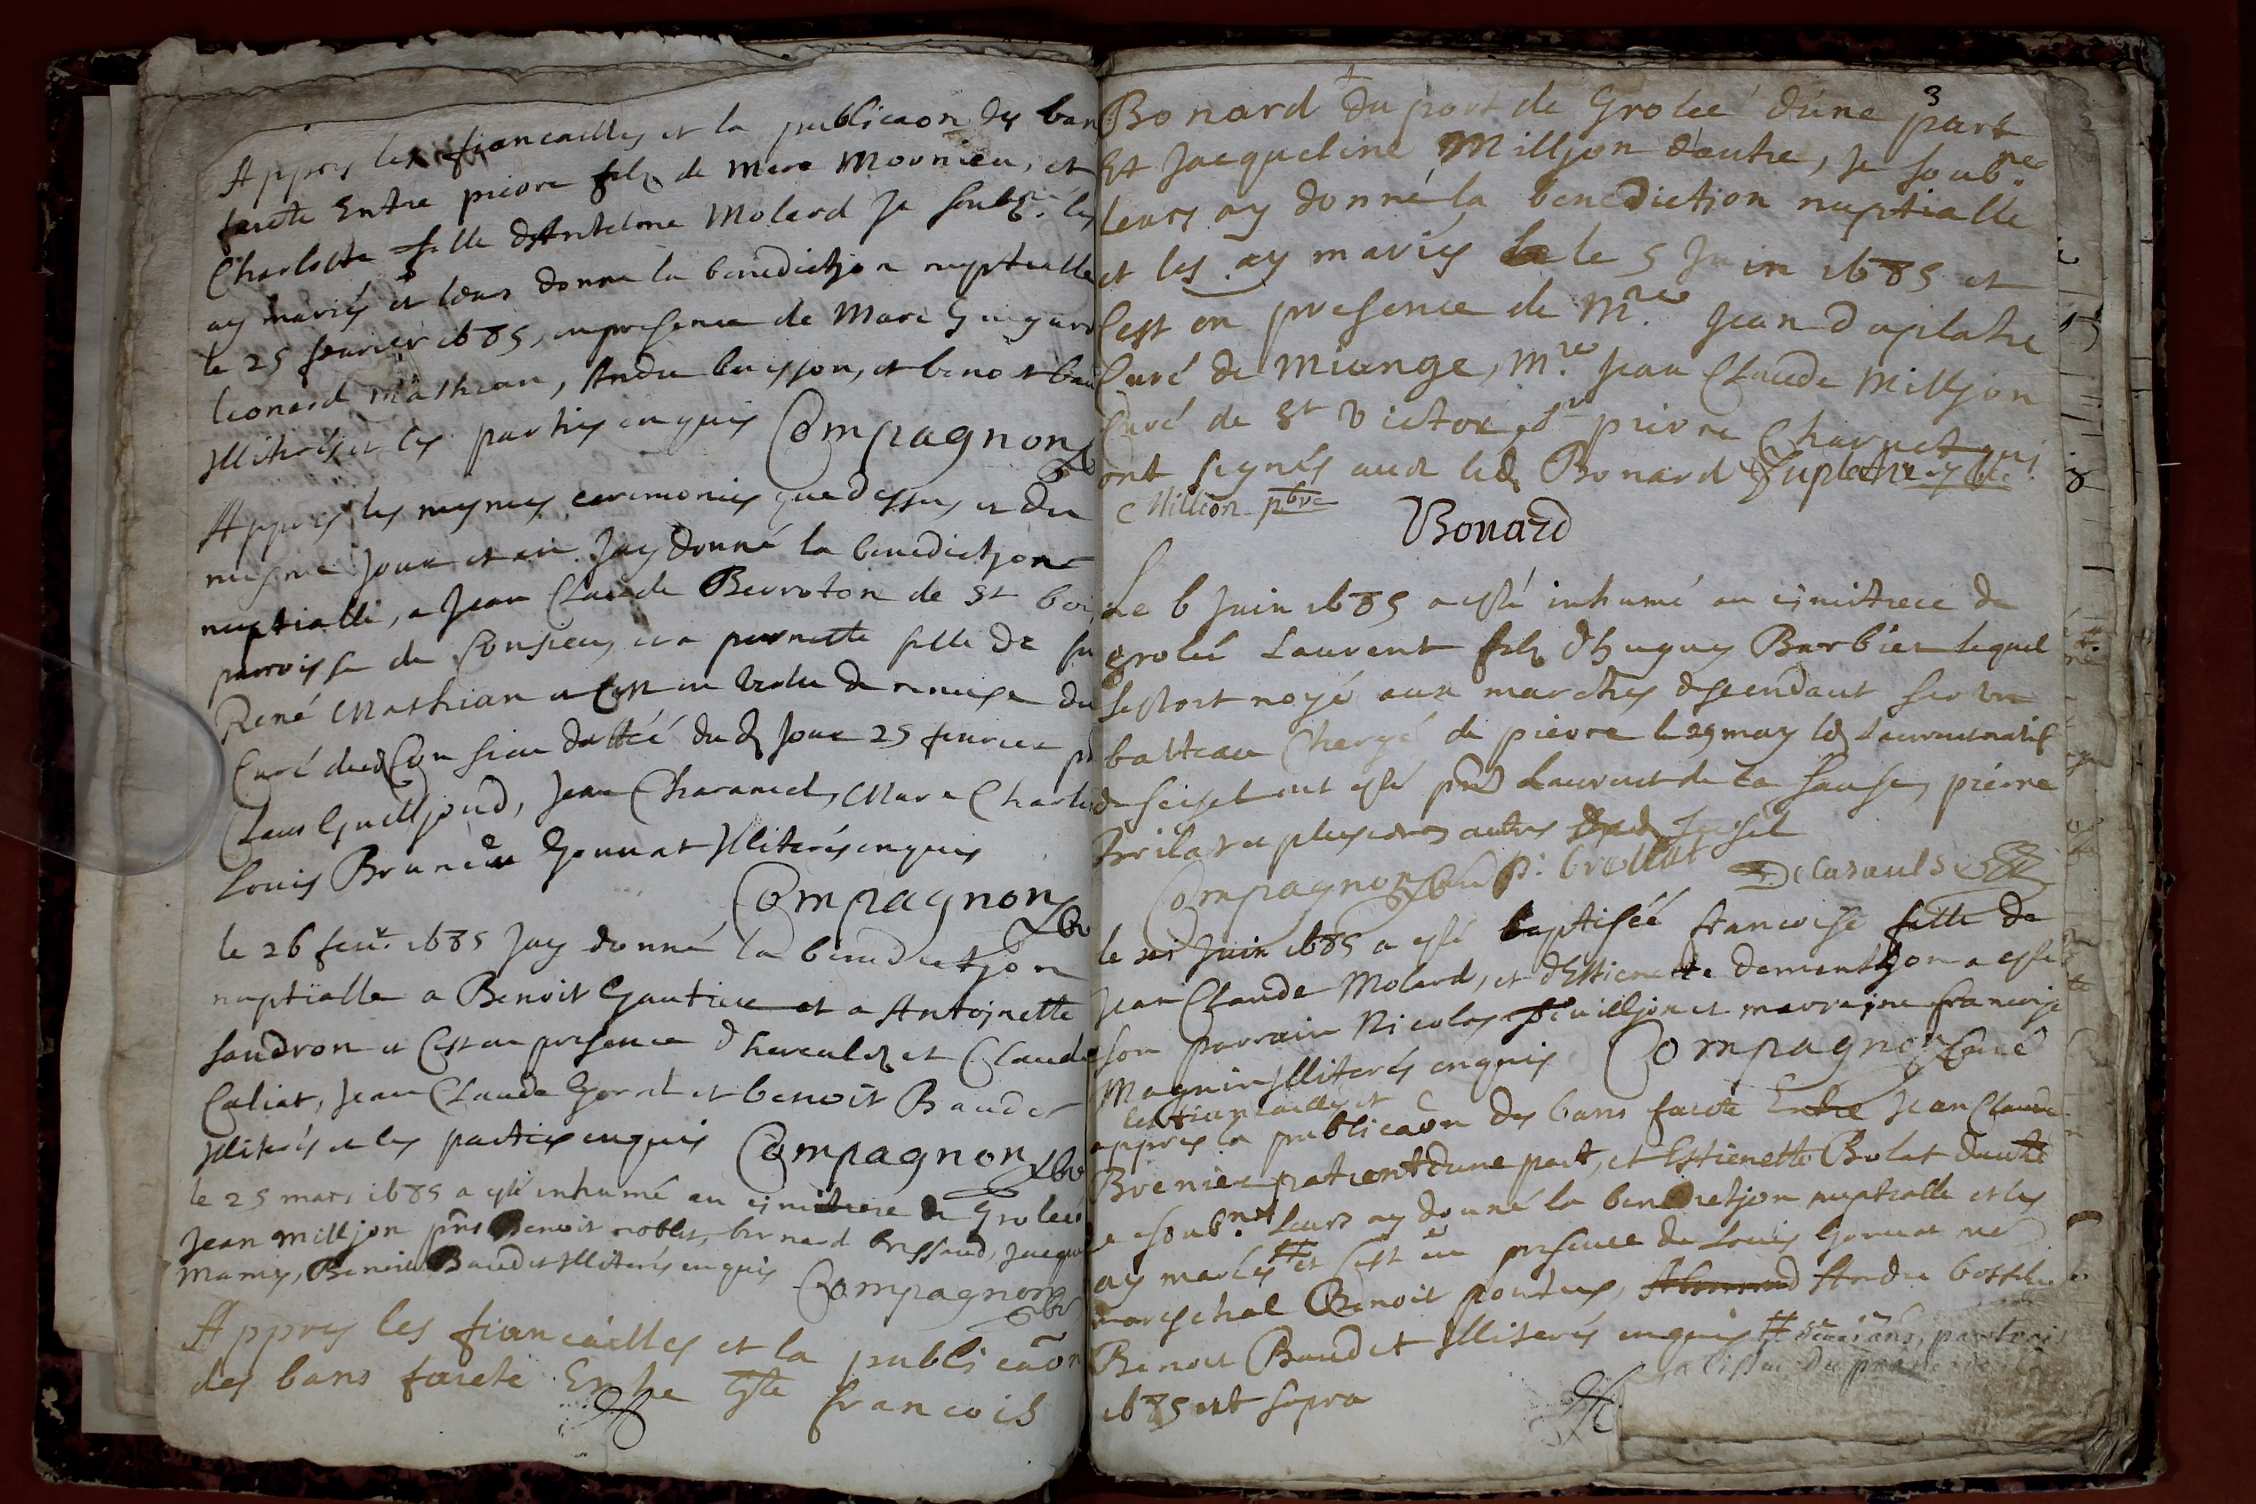 Appres les fiancailles et la publicaon des ban
faicte Entre pierre filz de Marc Mounieu, et
Charlotte fille d'Antelme Molard Je soubz.né les
ay mariés et leurs donné la benedictjon nuptialle
le 25 feurier 1685, en presence de Marc Guygard
leonard Mathian, Andre buisson, et benoit bau
Illiterés et les parties enquis Compagnon
Appres les mesmes ceremonies que dessus et du
mesme Jour et an Jay donné la benedictjon
nuptialle, a Jean Claude Berroton de St boi
parroisse de Consieu, et a pernette fille de fu
René Mathian et C'est en vertu de remise du
Curé dud Consieu dattéé dud Jour 25 feurier
Claus Guilljoud, Jean Charamel, Marc Charle
Louis Brun et Gonnat Illiterés enquis
Compagnon
le 26 feur. 1685 Jay donné la benedictjon
nuptialle a Benoit Gautier et a Antojnette
Sandron et C'est en presence d'hercules et Claude
Caliat, Jean Claude Goral et benoit Baudet
Illiterés et les parties enquis Compagnon
le 25 mars 1685 a esté inhumé au cimitiere de Grolee
Jean Milljon pnts Benoit noblet, bernard brissaud, Jacque
Mamys, Benoit Baudet Illiterés enquis
Compagnon
Appres les fiancailles et la publicaon
des bans faicte Entre Sr françois
3
Bonard du port de Groleé d'une part
Et Jacqueline Milljon d'autre, Je soub.né
leurs ay donné la benedictjon nuptialle
et les ay mariés le 5 Juin 1685 et
C'est en presence de Mre Jean duplatre
Curé de Miange, Mre Jean Claude Milljon
Curé de St Victor, Sr pierre Charuet qui
ont signés auec led Bonard Duplatre
Million pbre
Bonard
Le 6 Juin 1685 a esté inhumé au cimitiere de
groleé Laurent filz d'hugues Barbier lequel
sestoit noyé aux marches descendant sur un
batteau Chergé de pierre le 29 may led Laurent natif
de seissel ont esté pnts Laurent de la Sause, pierre
brilat et plusieurs autres dud seisel
Compagnon Curé P: brellat Decarauls
le Juin 1685 a esté baptiséé francoise fille de
Jean Claude Molard, et d'Estienette dementhon a esté
son parrain Nicolas Guilljon et marraine francoise
Magnin Illiterés enquis Compagnon Curé
les fiancailles et
appres la publicaon des bans faicte Entre Jean Claude
Brenier patient d'une part, et Estienette Bolat d'autre
Je soub.né Leurs ay donné la benedictjon nuptialle et les
ay mariés # et C'est en presence de Louis Gonnat me
mareschal Benoit pontus, Andre bottelu
Benoit Baudet Illiterés enquis #
1685 ut supra